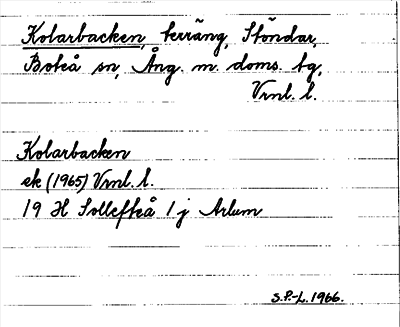 Kolarbacken, terräng, Stöndar,
Boteå sn, Ång. m. doms. tg,
Vrnl. l.
Kolarbacken
ek (1965) Vrnl. l.
19 H Sollefteå 1 j Arlum
S.P.-L. 1966.